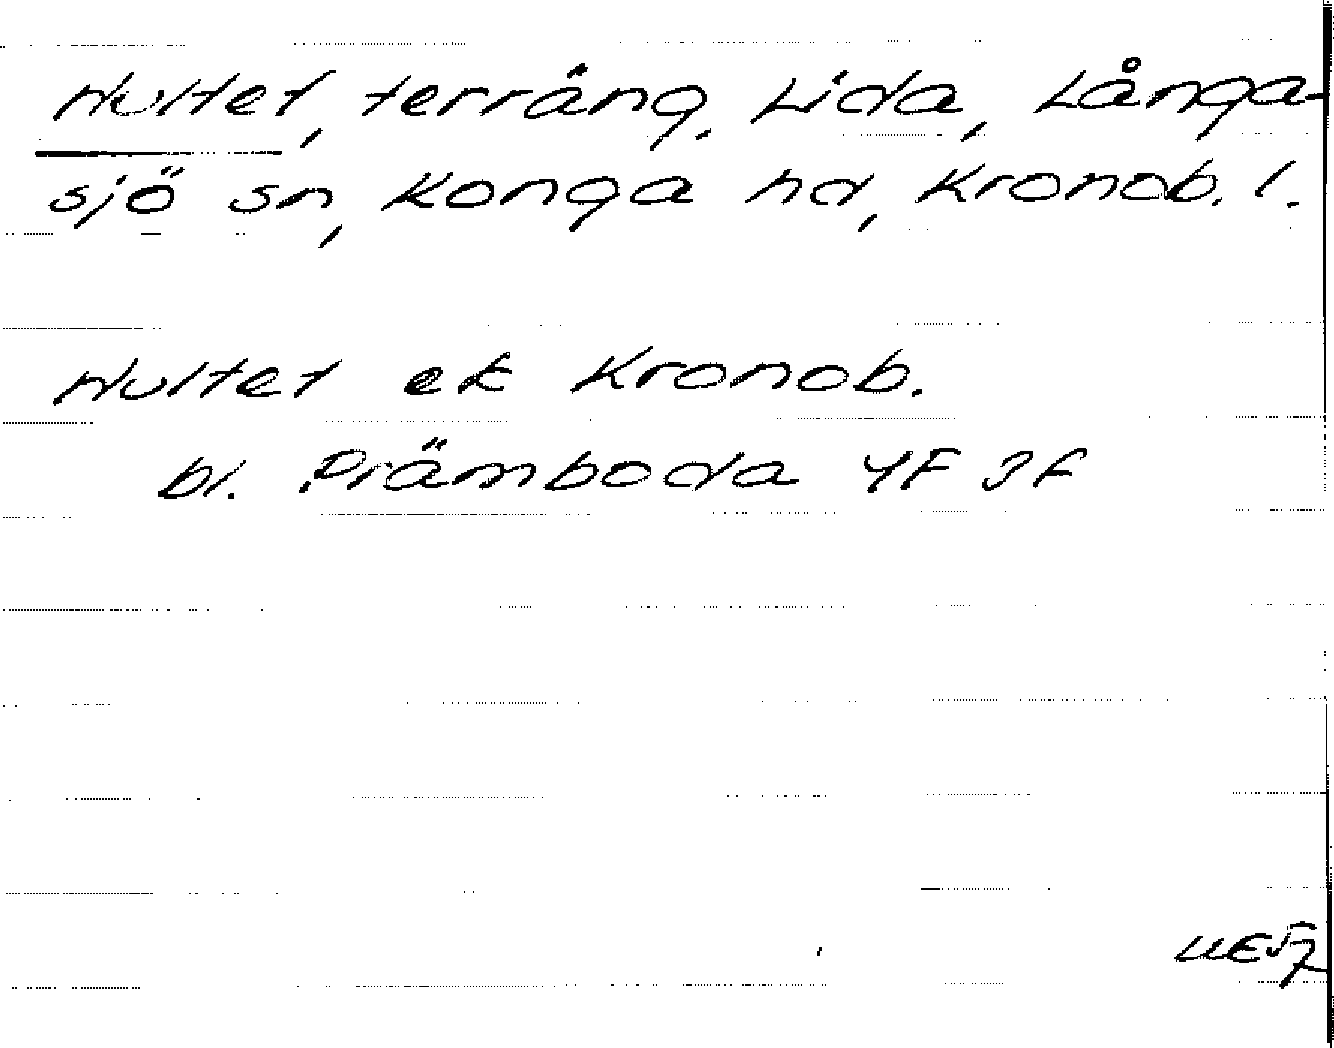 Hultet, terräng, Lida, Långa-
sjö sn, Konga hd, Kronob. l.
Hultet ek Kronob.
bl. Främboda 4F 3f